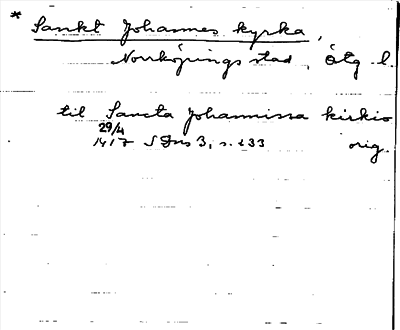 * Sankt Johannes kyrka,
Norrköpings stad, Ötg l.
til Sancta Johannissa kirkio
29/4
1417 SDns 3, s. 233 orig.